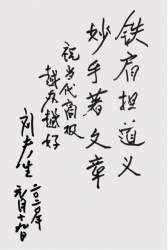 铁肩担道义
妙手著文章
祝当代商报
越办越好
刘夫生
二〇一一年
元月十九日